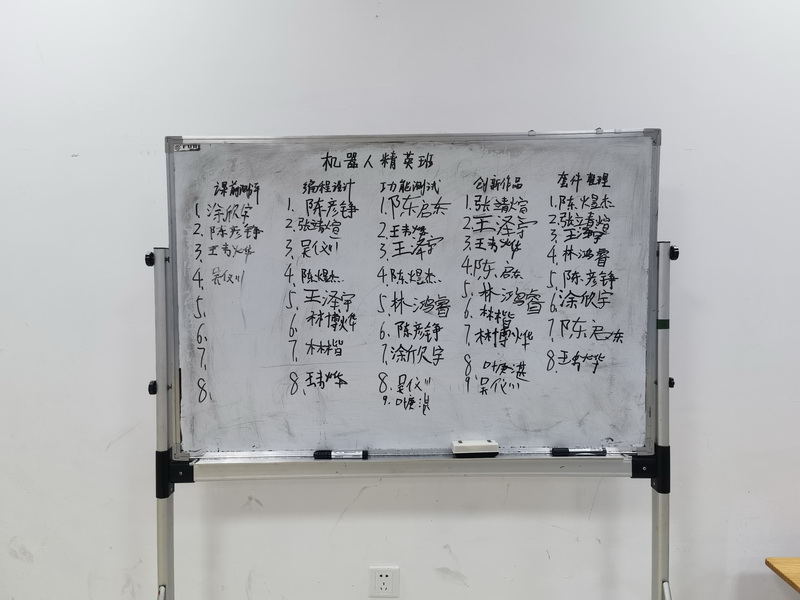 机器人精英班
课前测评
1. 涂欣宇
2. 陈彦铮
3. 王书烨
4. 吴仪川
5.
6.
7.
8.
编程设计
1. 陈彦铮
2. 张靖煊
3. 吴仪川
4. 陈煜杰
5. 王泽宇
6. 林博烨
7. 林楷
8. 王书烨
功能测试
1. 陈启东
2. 王书烨
3. 王泽宇
4. 陈煜杰
5. 林鸿睿
6. 陈彦铮
7. 涂欣宇
8. 吴仪川
9. 叶唐湛
创新作品
1. 张靖煊
2. 王泽宇
3. 王书烨
4. 陈启东
5. 林鸿睿
6. 林楷
7. 林博烨
8. 叶唐湛
9. 吴仪川
套件整理
1. 陈煜杰
2. 张靖煊
3. 王泽宇
4. 林鸿睿
5. 陈彦铮
6. 涂欣宇
7. 陈启东
8. 王书烨